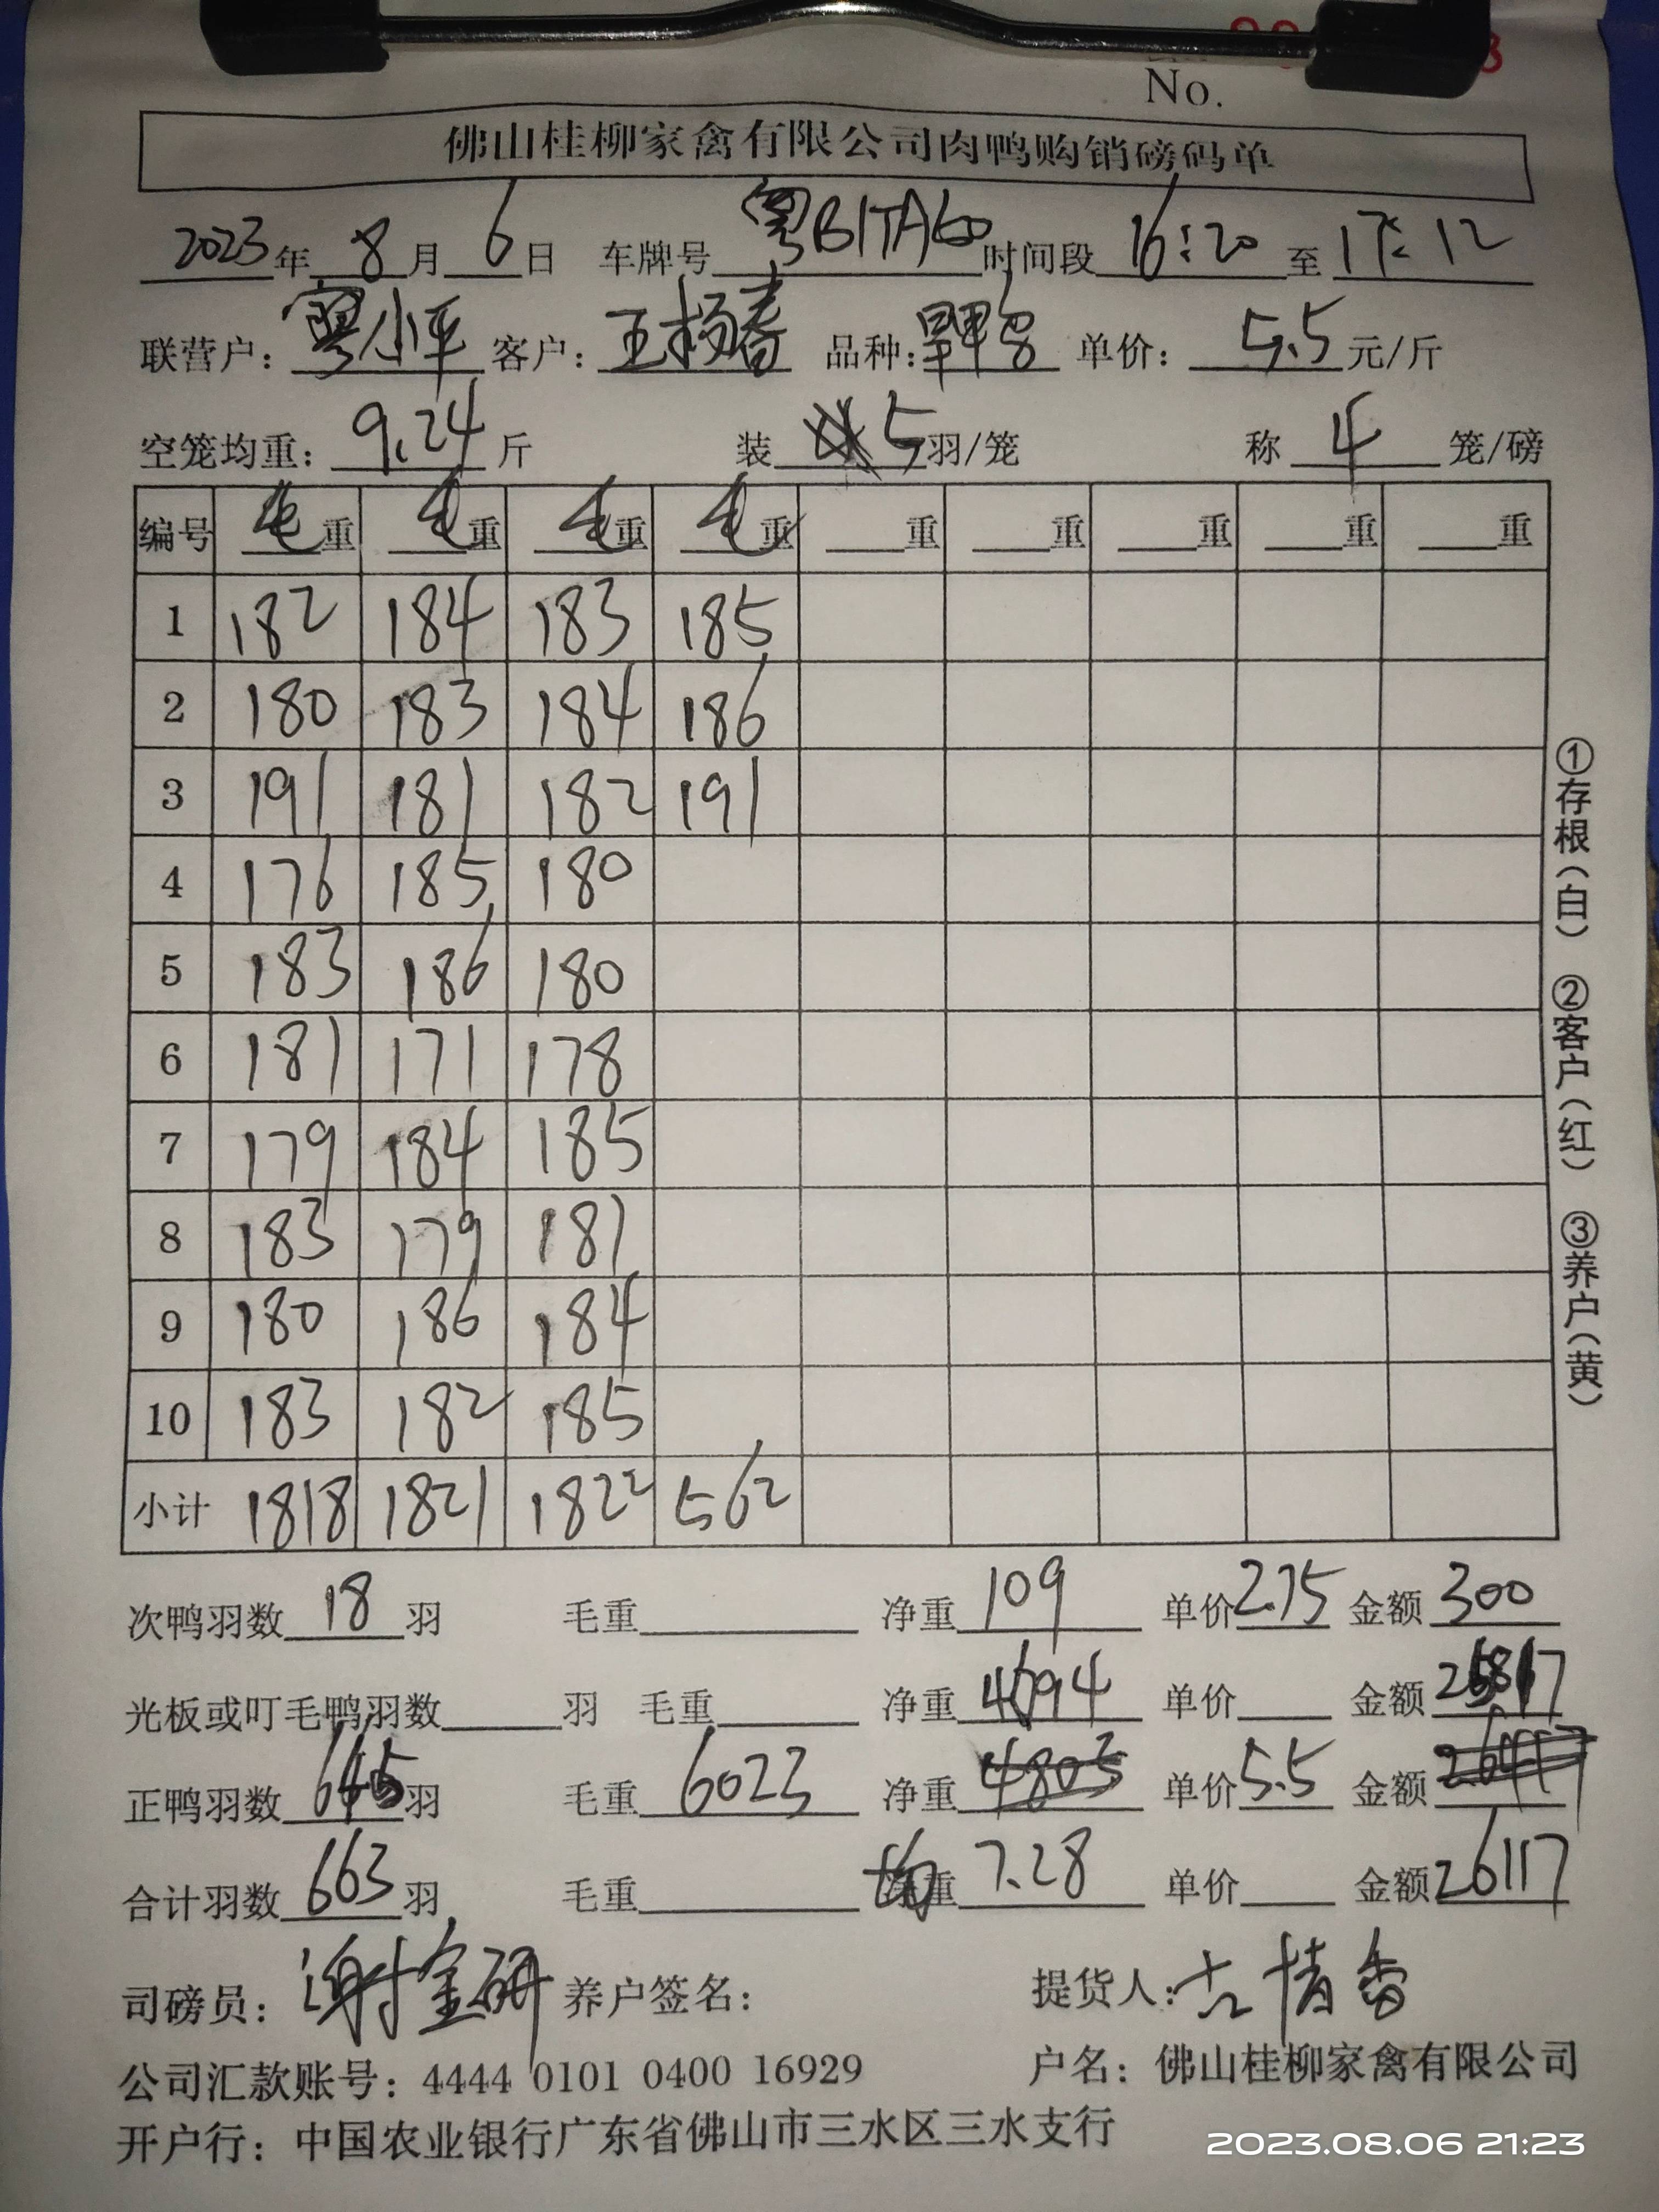 No.
佛山桂柳家禽有限公司肉鸭购销磅码单
2023年 8月 6日 车牌号 粤B1TA60 时间段 16:20 至 17:12
联营户: 廖小平 客户: 王杨春 品种: 单价: 5.5 元/斤
空笼均重: 9.24 斤 装 5 羽/笼 称 4 笼/磅
编号 毛重 毛重 毛重 毛重 重 重 重 重 重
1 182 184 183 185
2 180 183 184 186
3 191 181 182 191
4 176 185 180
5 183 186 180
6 181 171 178
7 179 184 185
8 183 179 181
9 180 186 184
10 183 182 185
小计 1818 1821 1822 562
次鸭羽数 18 羽 毛重 净重 109 单价 2.75 金额 300
光板或叮毛鸭羽数 羽 毛重 净重 4694 单价 金额 25817
正鸭羽数 645 羽 毛重 6023 净重 4803 单价 5.5 金额
合计羽数 663 羽 毛重 均重 7.28 单价 金额 26117
司磅员: 谢金研 养户签名: 提货人: 古情香
公司汇款账号: 4444 0101 0400 16929 户名: 佛山桂柳家禽有限公司
开户行: 中国农业银行广东省佛山市三水区三水支行
①存根(白) ②客户(红) ③养户(黄)
2023.08.06 21:23